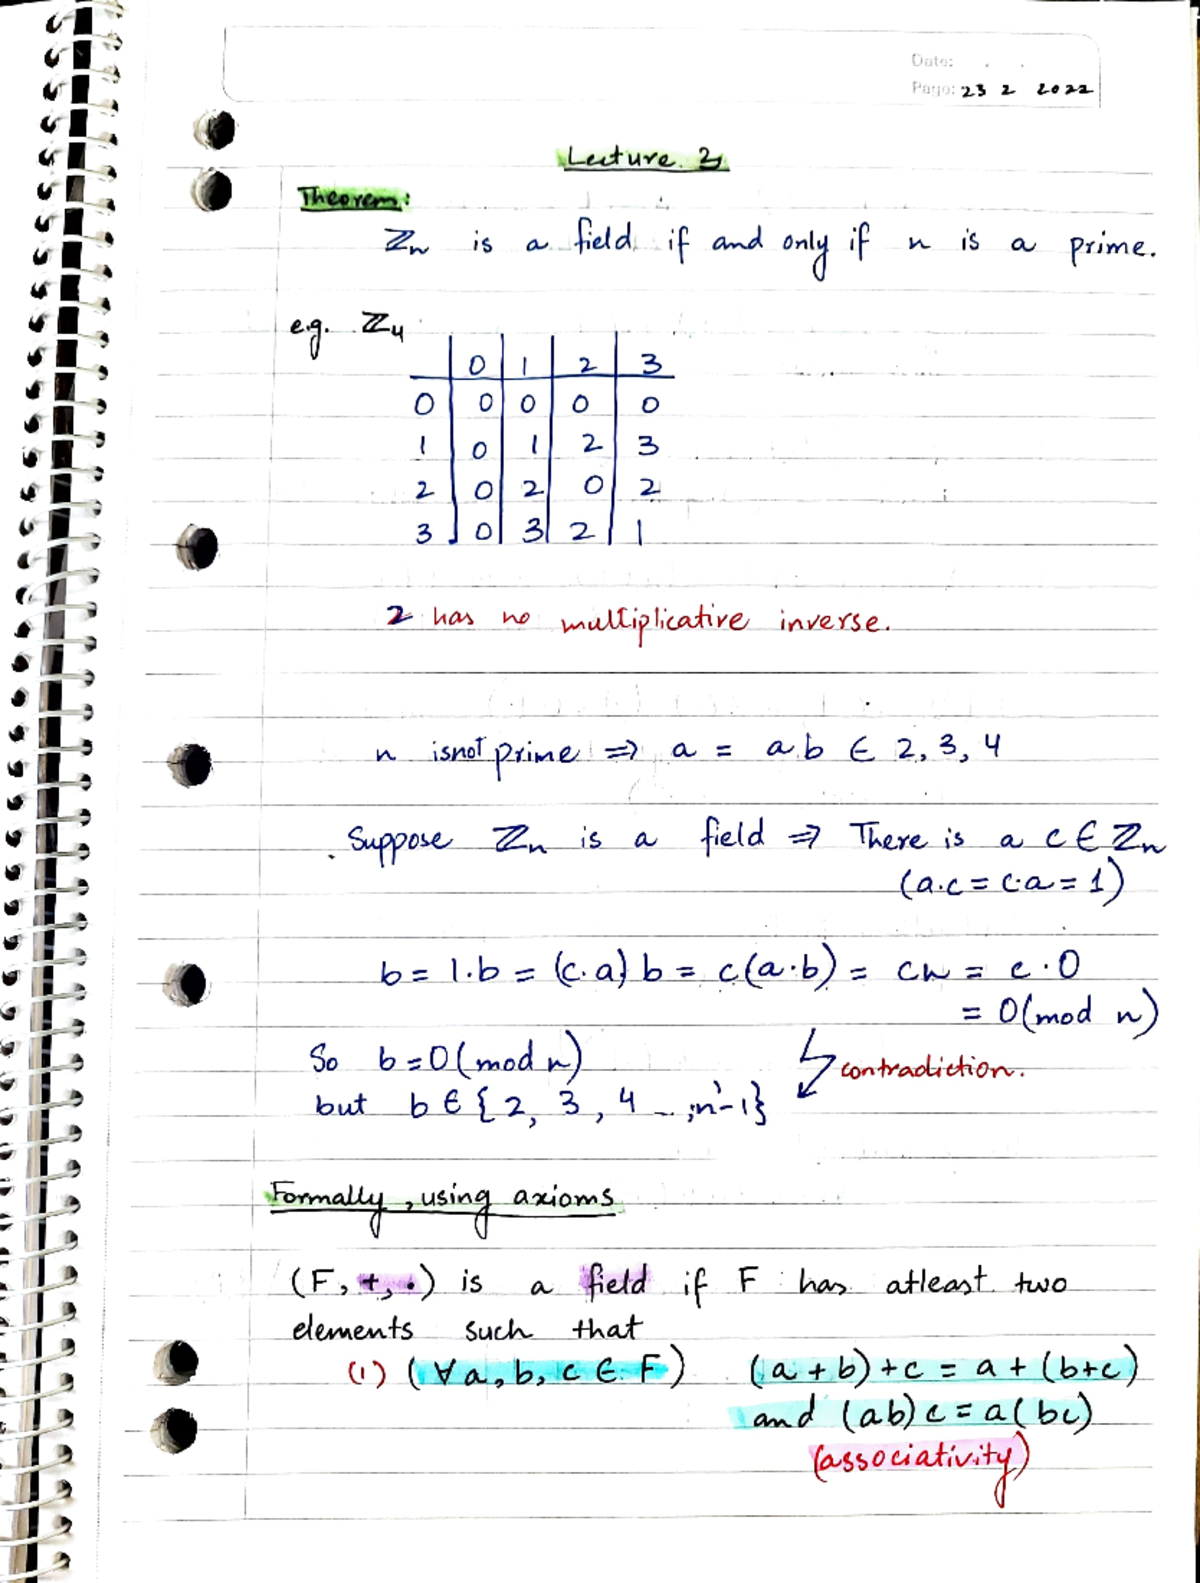 Date: . .
Page: 23 2 2022
Lecture 3
Theorem:
ℤn is a field if and only if n is a prime.
e.g. ℤ4
0 1 2 3
0 0 0 0 0
1 0 1 2 3
2 0 2 0 2
3 0 3 2 1
2 has no multiplicative inverse.
n isnot prime ⇒ a = a.b ∈ 2, 3, 4
. Suppose ℤn is a field ⇒ There is a c ∈ ℤn
(a.c = c.a = 1)
b = 1.b = (c.a) b = c(a.b) = cn = c.0
= 0(mod n)
So b = 0(mod n)
contradiction.
but b ∈ {2, 3, 4 - , n-1}
Formally, using axioms
(F, +, •) is a field if F has atleast two
elements such that
(1) (∀a, b, c ∈ F) (a + b) + c = a + (b+c)
and (ab) c = a(bc)
(associativity)